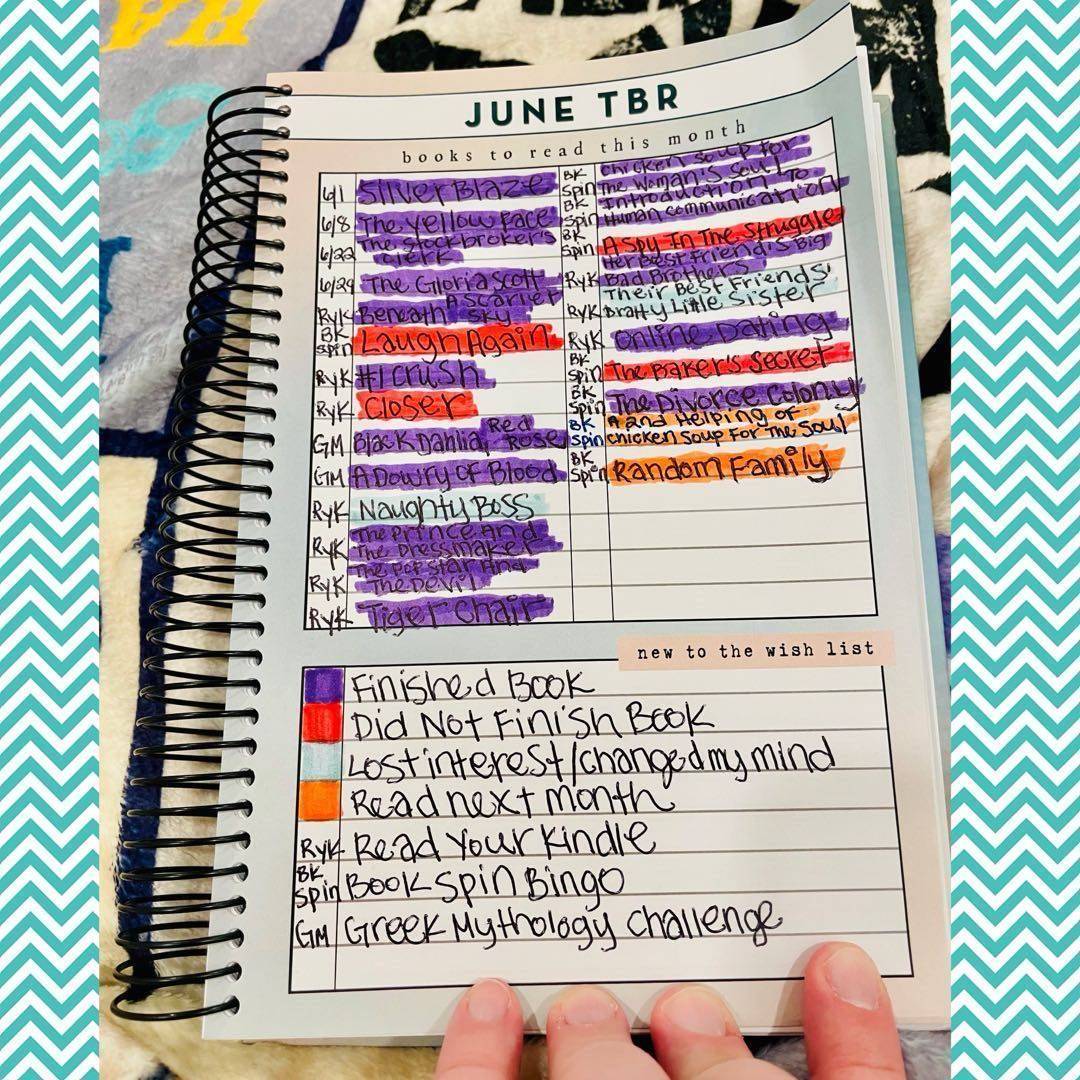 JUNE TBR
books to read this month
6/1 Silver Blaze
6/8 The Yellow Face
6/22 The Stockbroker's
Clerk
6/29 The Gloria Scott
RYK Beneath A Scarlet
Sky
BK Spin Laugh Again
RYK #1 Crush
RYK Closer
GM Black Dahlia, Red
Rose
GM A Dowry Of Blood
RYK Naughty Boss
RYK The Prince And
The Dressmaker
RYK The Pop Star And
The Devil
RYK Tiger Chair
BK Spin Chicken Soup For
The Woman's Soul
BK Spin Introduction To
Human Communication
BK Spin A Spy In The Struggle
RYK Her Best Friend's Big
Bad Brothers
RYK Their Best Friends'
Bratty Little Sister
RYK Online Dating
BK Spin The Baker's Secret
BK Spin The Divorce Colony
BK Spin A 2nd Helping Of
Chicken Soup For The Soul
BK Spin Random Family
new to the wish list
Finished Book
Did Not Finish Book
Lost interest/changed my mind
Read next month
RYK Read Your Kindle
BK Spin Book Spin Bingo
GM Greek Mythology Challenge